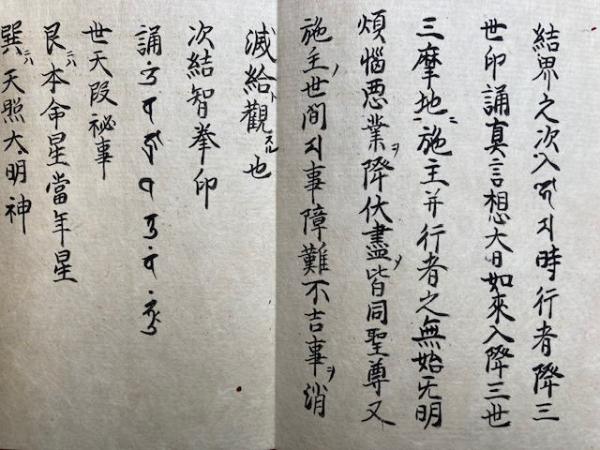 結界之次入之時行者降三
世印誦真言想大日如來入降三世
三摩地ニ施主并行者之無始无明
煩惱悪業ヲ降伏盡皆同聖尊又
施主ノ世間之事障難不吉事ヲ消
滅給ト觀スル也
次結智拳印
誦
世天段秘事
艮ニハ本命星當年星
巽ニハ天照太明神